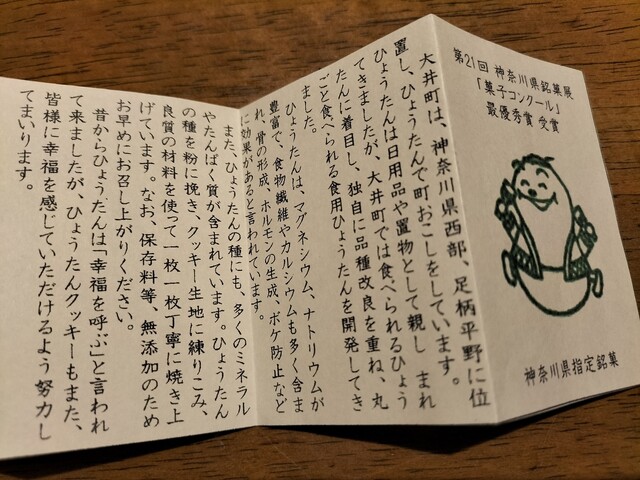 第21回 神奈川県銘菓展
「菓子コンクール」
最優秀賞 受賞
神奈川県指定銘菓
大井町は、神奈川県西部、足柄平野に位
置し、ひょうたんで町おこしをしています。
ひょうたんは日用品や置物として親し まれ
てきましたが、大井町では食べられるひょう
たんに着目し、独自に品種改良を重ね、丸
ごと食べられる食用ひょうたんを開発してき
ました。
ひょうたんは、マグネシウム、ナトリウムが
豊富で、食物繊維やカルシウムも多く含ま
れ、骨の形成、ホルモンの生成、ボケ防止など
に効果があると言われています。
また、ひょうたんの種にも、多くのミネラル
やたんぱく質が含まれています。ひょうたん
の種を粉に挽き、クッキー生地に練りこみ、
良質の材料を使って一枚一枚丁寧に焼き上
げています。なお、保存料等、無添加のため
お早めにお召し上がりください。
昔からひょうたんは「幸福を呼ぶ」と言われ
て来ましたが、ひょうたんクッキーもまた、
皆様に幸福を感じていただけるよう努力し
てまいります。